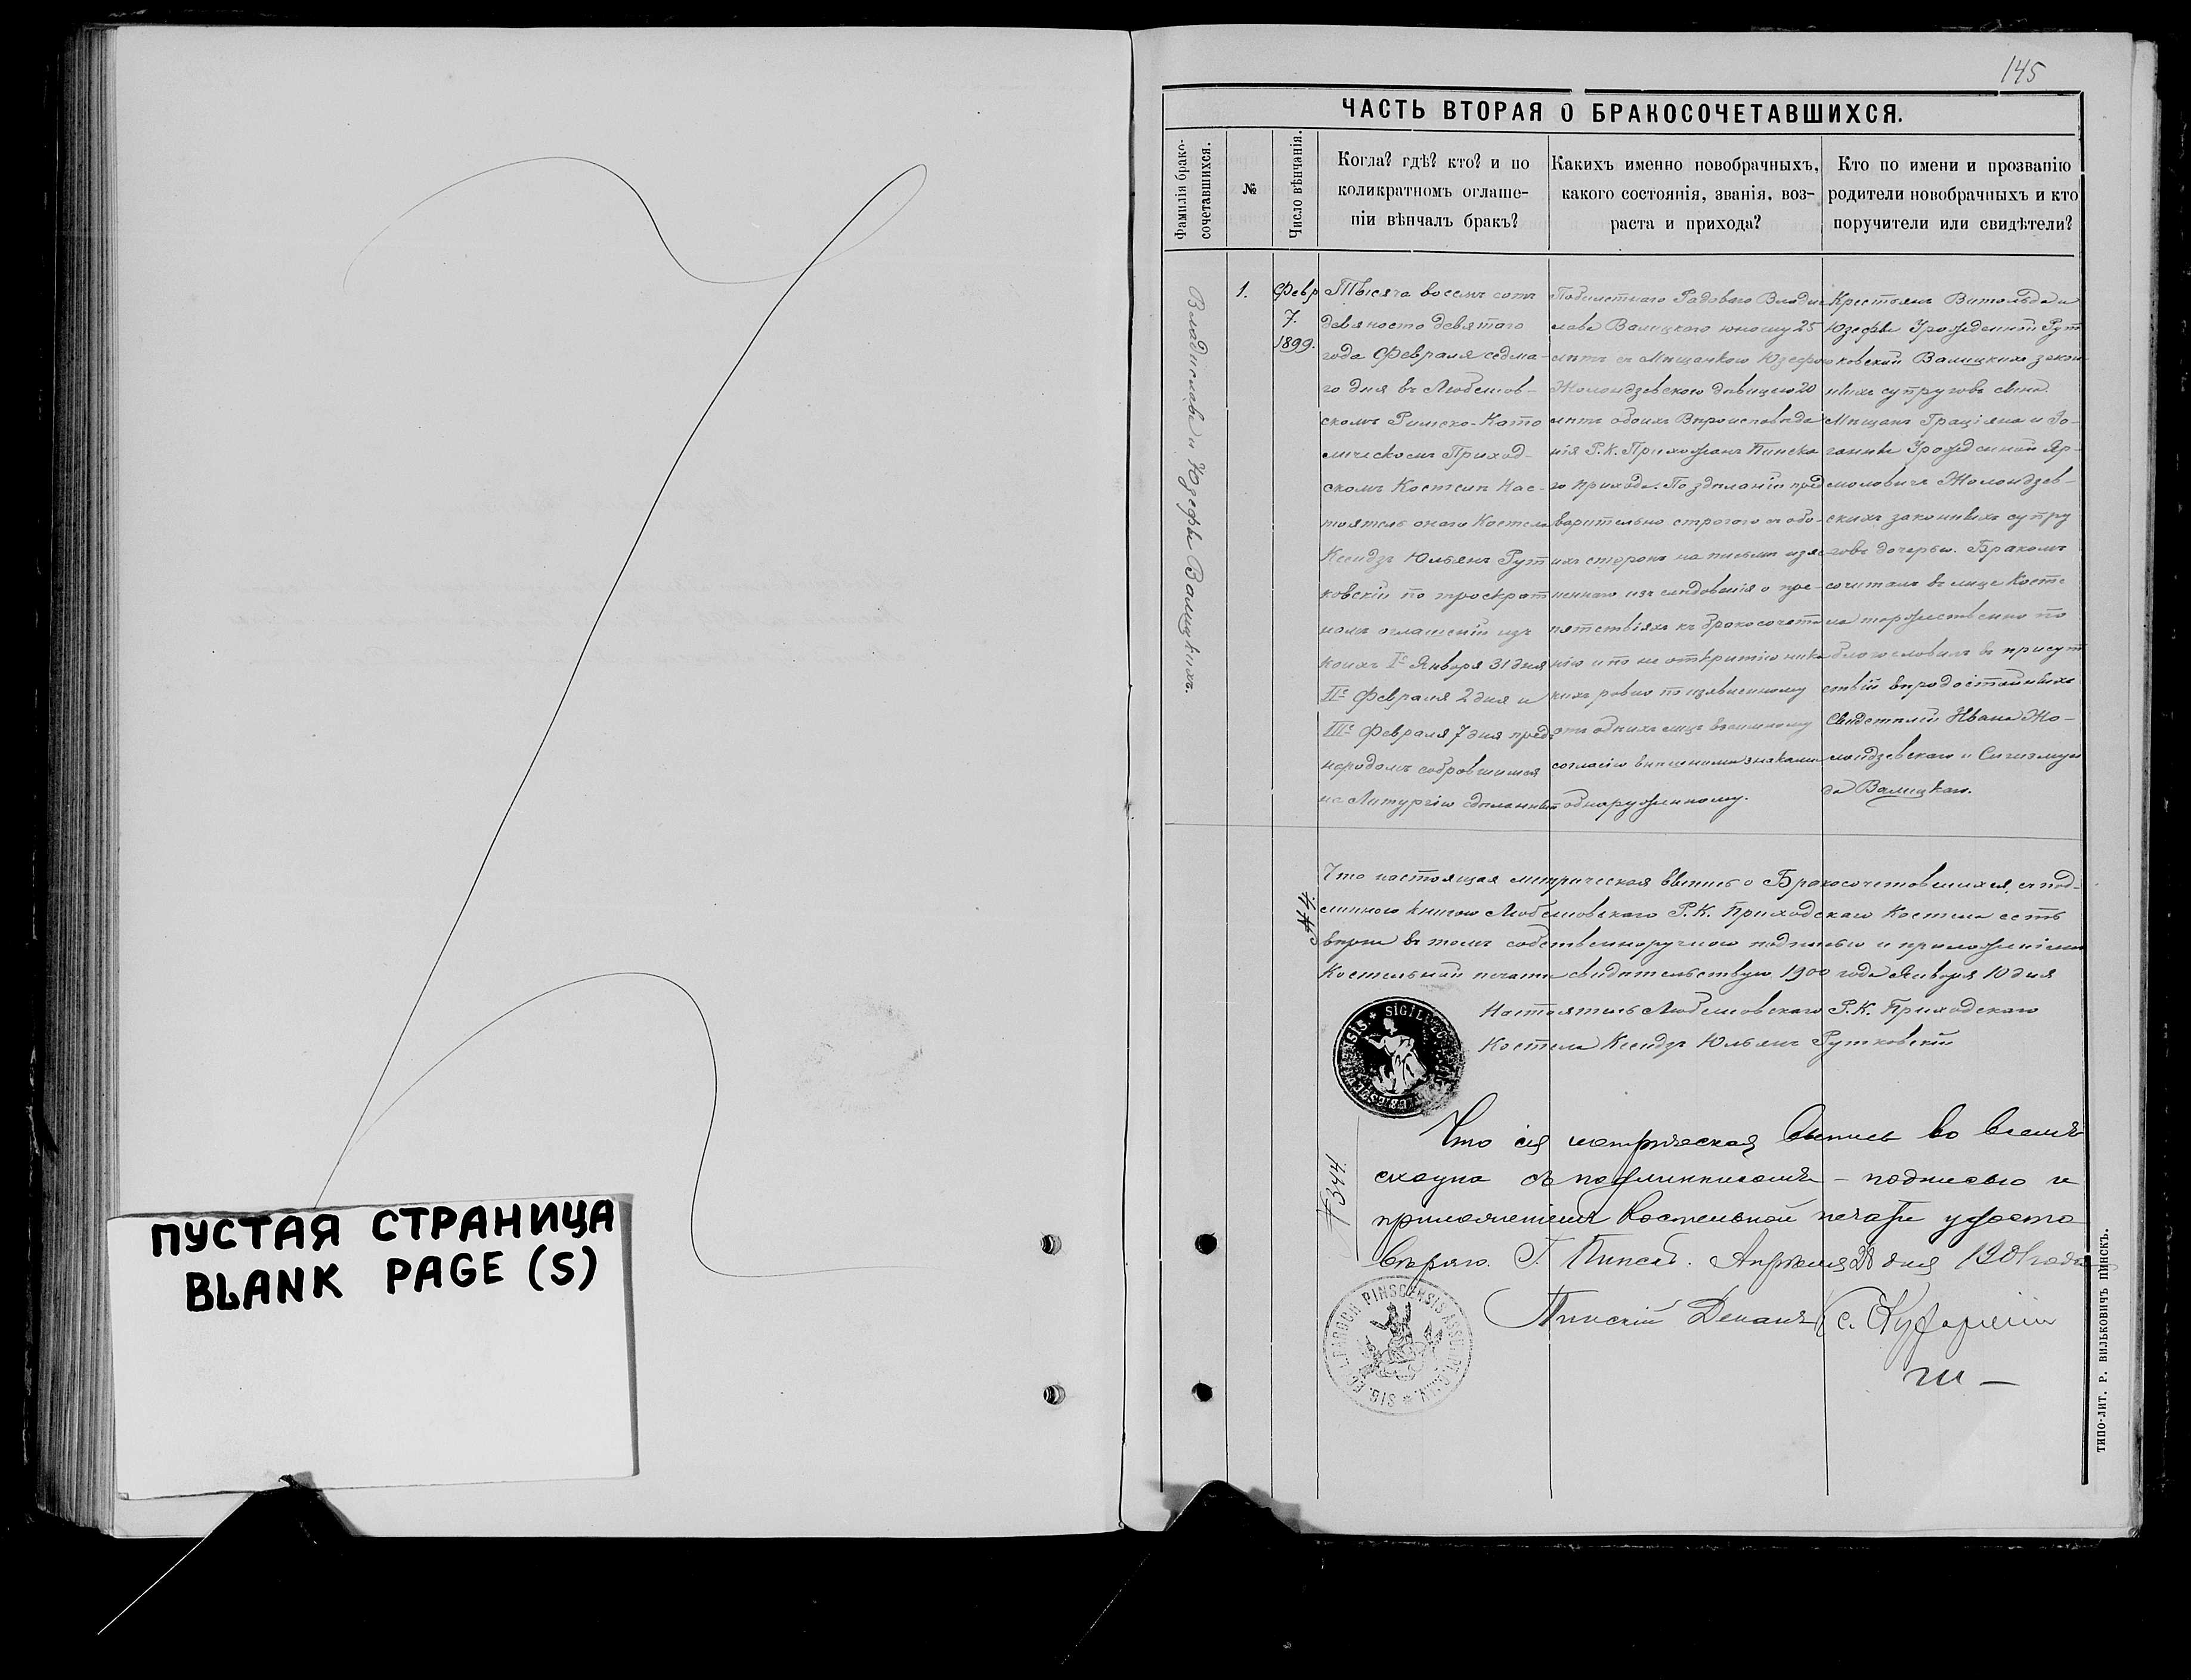 ПУСТАЯ СТРАНИЦА
BLANK PAGE (S)
145
ЧАСТЬ ВТОРАЯ О БРАКОСОЧЕТАВШИХСЯ.
Фамилія брако-
сочетавшихся.
№
Число вѣнчанія.
Когда? гдѣ? кто? и по
коликратномъ оглаше-
ніи вѣнчалъ бракъ?
Какихъ именно новобрачныхъ,
какого состоянія, званія, воз-
раста и прихода?
Кто по имени и прозванію
родители новобрачныхъ и кто
поручители или свидѣтели?
Владислава и Юзефы Валицкихъ.
1.
Февр
7.
1899.
Тысяча восемь сотъ
девяносто девятого
года Февраля седма-
го дня въ Любешов-
скомъ Римско-Като
лическомъ Приход-
скомъ Костелѣ Нас-
тоятель онаго Костела
Ксендзъ Юльянъ Рут
ковскій по троекрат
номъ оглашеніи изъ
коихъ I-е Января 31 дня
II-е Февраля 2 дня и
III-е Февраля 7 дня предъ
народомъ собравшимся
на Литургію
Рядоваго Влади
слава Валицкого юношу 25
лѣтъ съ Мѣщанкою Юзефою
Жолондзевскою дѣвицею 20
лѣтъ обоихъ Вѣроисповѣда
нія Р.К. Прихожанъ Пинска
го прихода. По здѣланіи пред
варительно строгого съ обо-
ихъ сторонъ на письмѣ изяс
неннаго изслѣдованія о пре-
пятствіяхъ къ бракосочета
нію и по не открытію ника
кихъ ровно по изявленному
взаимному
согласію внѣшними знаками
обнаруженному.
Крестьянъ Витольда и
Юзефы Урожденной Рут
ковской Валицкихъ закон
ныхъ супруговъ сына
Мѣщанъ Граціяна и Іо-
ганны Урожденной Яр-
моловичъ Жолондзев-
скихъ законныхъ супру
говъ дочерью. Бракомъ
сочеталъ въ лице Косте
ла торжественно по
благословилъ въ присут
ствіи вѣродостойныхъ
Свидетелей Ивана Жо-
лондзевскаго и Сигизмун
да Валицкаго.
Что настоящая метрическая выпись о Бракосочетовшихся, съ под-
линною книгою Любешовскаго Р.К. Приходскаго Костела есть
вѣрна въ томъ собственноручною подписью и приложеніемъ
Костельной печати свидѣтельствую, 1900 года Января 10 дня
Настоятель Любешовскаго Р.К. Приходскаго
Костела Ксендзъ Юльянъ Рутковскій
№ 344
Что сія метрическая выпись во всемъ
сходна съ подлинникомъ – подписью и
приложеніемъ Костельной печати удосто
вѣряю. Г. Пинскъ. Апрѣля 28 дня
Пинскій Деканъ
ТИПО-ЛИТ. Р. ВИЛЬКОВИЧЪ ПИНСКЪ.